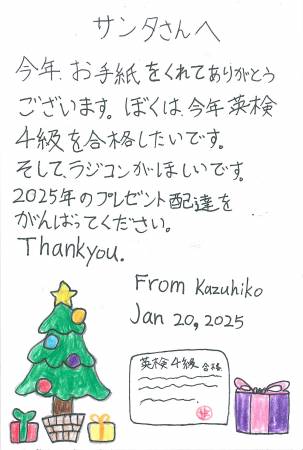 サンタさんへ
今年、お手紙をくれてありがとう
ございます。ぼくは、今年英検
4級を合格したいです。
そして、ラジコンがほしいです。
2025年のプレゼント配達を
がんばってください。
Thankyou.
From Kazuhiko
Jan 20, 2025
英検4級 合格